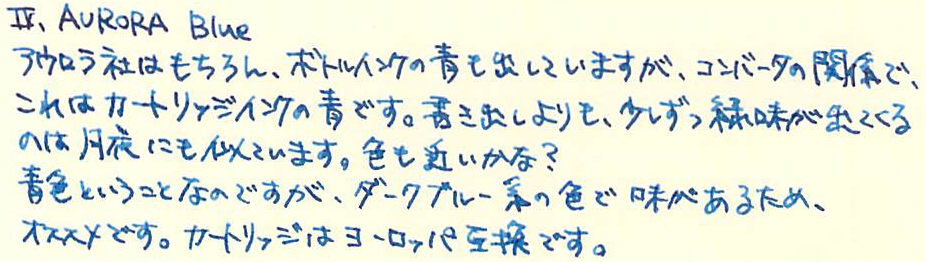 Ⅳ、AURORA Blue
アウロラ社はもちろん、ボトルインクの青も出していますが、コンバータの関係で、
これはカートリッジインクの青です。書き出しよりも、少しずつ緑味が出てくる
のは月夜にも似ています。色も近いかな?
青色ということなのですが、ダークブルー系の色で味があるため、
オススメです。カートリッジはヨーロッパ互換です。